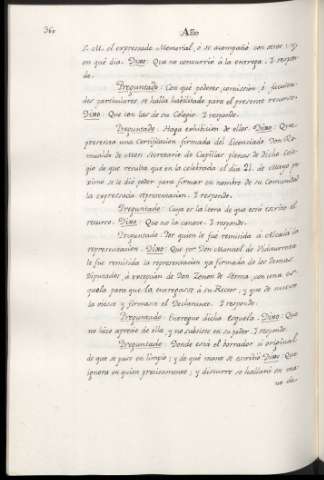 36v
Año
S. M. el expresado Memorial, ó se acompañó con otros, y
en qué dia. Dixo: Que no concurrió á la entrega. I respon-
de.
Preguntado: Con qué poderes, comission ó facultades
particulares se halla habilitado para el presente recurso.
Dixo: Que con las de su Colegio. I responde.
Preguntado: Haga exhibicion de ellas. Dixo: Que
presenta una Certificacion firmada del Licenciado Don
Secretario de Capillas plenas de dicho Cole-
gio de que resulta que en la celebrada el dia 21. de Mayo pro-
ximo se le dió poder para firmar en nombre de su Comunidad
la expressada representacion. I responde.
Preguntado: Cuya es la letra de que está escrito el
recurso. Dixo: Que no la conoce. I responde.
Preguntado: Por quien le fue remitida á Alcalá la
representacion. Dixo: Que por Don Manuel de Vidaurreta
le fue remitida la representacion ya firmada de los demas
Diputados á excepcion de Don con una es-
quela para que la entregasse á su Rector, y que de nuevo
la viesse y firmasse el Declarante. I responde.
Preguntado: Entregue dicha Esquela. Dixo: Que
no hizo aprecio de ella y no subsiste en su poder. I responde.
Preguntado: Donde está el borrador ú original
de que se puso en limpio; y de qué mano se escribió. Dixo: Que
ignora en quien precisamente; y discurre se hallará en ma-
no de